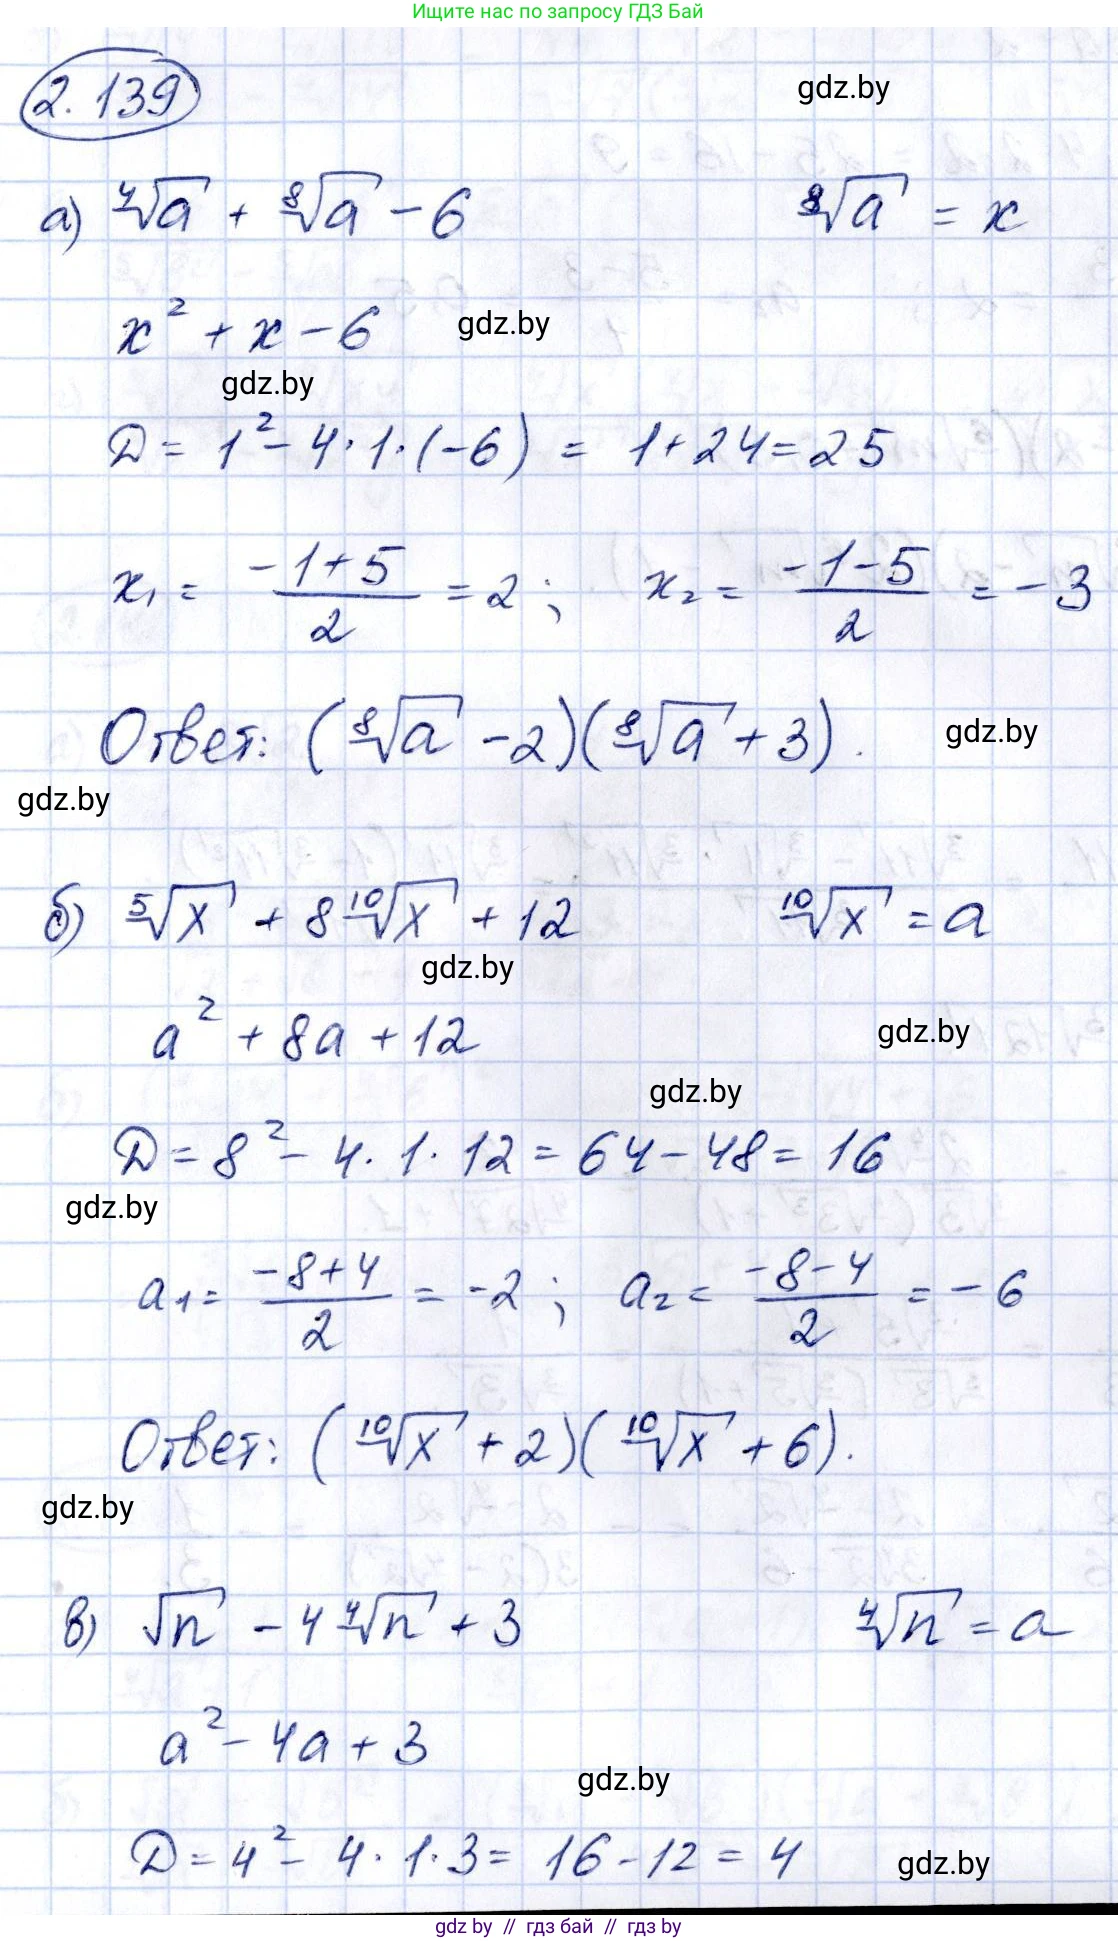 Ищите нас по запросу ГДЗ Бай
2.139
gdz.by
а) ⁴√a + ⁸√a - 6    ⁸√a = x
x² + x - 6
gdz.by
gdz.by
D = 1² - 4·1·(-6) = 1+24=25
x₁ = (-1+5)/2 = 2 ; x₂ = (-1-5)/2 = -3
Ответ: (⁸√a - 2)(⁸√a + 3).
gdz.by
gdz.by
б) ⁵√x + 8 ¹⁰√x + 12    ¹⁰√x = a
gdz.by
a² + 8a + 12
gdz.by
gdz.by
D = 8² - 4·1·12 = 64-48= 16
gdz.by
a₁ = (-8+4)/2 = -2 ; a₂ = (-8-4)/2 = -6
Ответ: (¹⁰√x + 2)(¹⁰√x + 6).
gdz.by
в) √n - 4 ⁴√n + 3    ⁴√n = a
a² - 4a + 3
gdz.by
D = 4² - 4·1·3 = 16-12 = 4
gdz.by
gdz by // гдз бай // гдз by